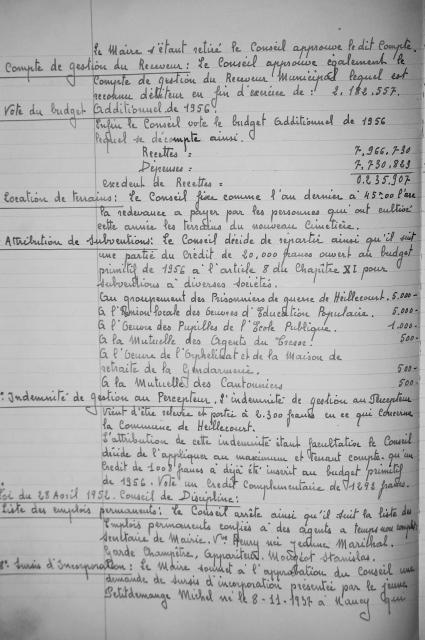 Le Maire s'étant retiré le Conseil approuve ledit Compte.
Compte de gestion du Receveur : Le Conseil approuve également le
Compte de gestion du Receveur Municipal lequel est
reconnu débiteur en fin d'exercice de : 2.182.557.
Vote du budget Additionnel de 1956.
Enfin le Conseil vote le budget Additionnel de 1956
lequel se décompte ainsi.
Recettes = 7.966.730
Dépenses = 7.730.823
excédent de Recettes = 0.235.907
Location de terrains : Le Conseil fixe comme l'an dernier à 45F00 l'are
la redevance à payer par les personnes qui ont cultivé
cette année les terrains du nouveau Cimetière.
Attribution de Subventions : Le Conseil décide de répartir ainsi qu'il suit
une partie du Crédit de 20,000 francs ouvert au budget
primitif de 1956 à l'article 8 du Chapitre XI pour
subventions à diverses sociétés.
Au groupement des Prisonniers de guerre de Heillecourt. 5.000-
à l'Union locale des Oeuvres d'Education Populaire. 5.000-
à l'Oeuvre des Pupilles de l'Ecole Publique. 1.000-
à la Mutuelle des Agents du 500-
à l'Oeuvre de l'Orphelinat et de la Maison de
retraite de la Gendarmerie. 500-
à la Mutuelle des Cantonniers 500-
Indemnité de gestion au Percepteur. L'indemnité de gestion au Percepteur
vient d'être relevée et portée à 2.300 francs en ce qui concerne
la Commune de Heillecourt.
L'attribution de cette indemnité étant facultative le Conseil
décide de l'appliquer au maximum et tenant compte qu'un
Crédit de 1008 francs a déjà été inscrit au budget primitif
de 1956. Vote un Crédit Complémentaire de 1292 francs.
Loi du 28 Avril 1952. Conseil de Discipline :
Liste des emplois permanents : Le Conseil arrête ainsi qu'il suit la liste des
Emplois permanents confiés à des agents à temps non complet
Secrétaire de Mairie. Vve Henry née Jeanne Maréchal.
Garde Champêtre, Appariteur. Stanislas.
Sursis d'Incorporation : Le Maire soumet à l'approbation du Conseil une
demande de sursis d'incorporation présentée par le jeune
Petitdemange Michel né le 8-11-1937 à Nancy qui